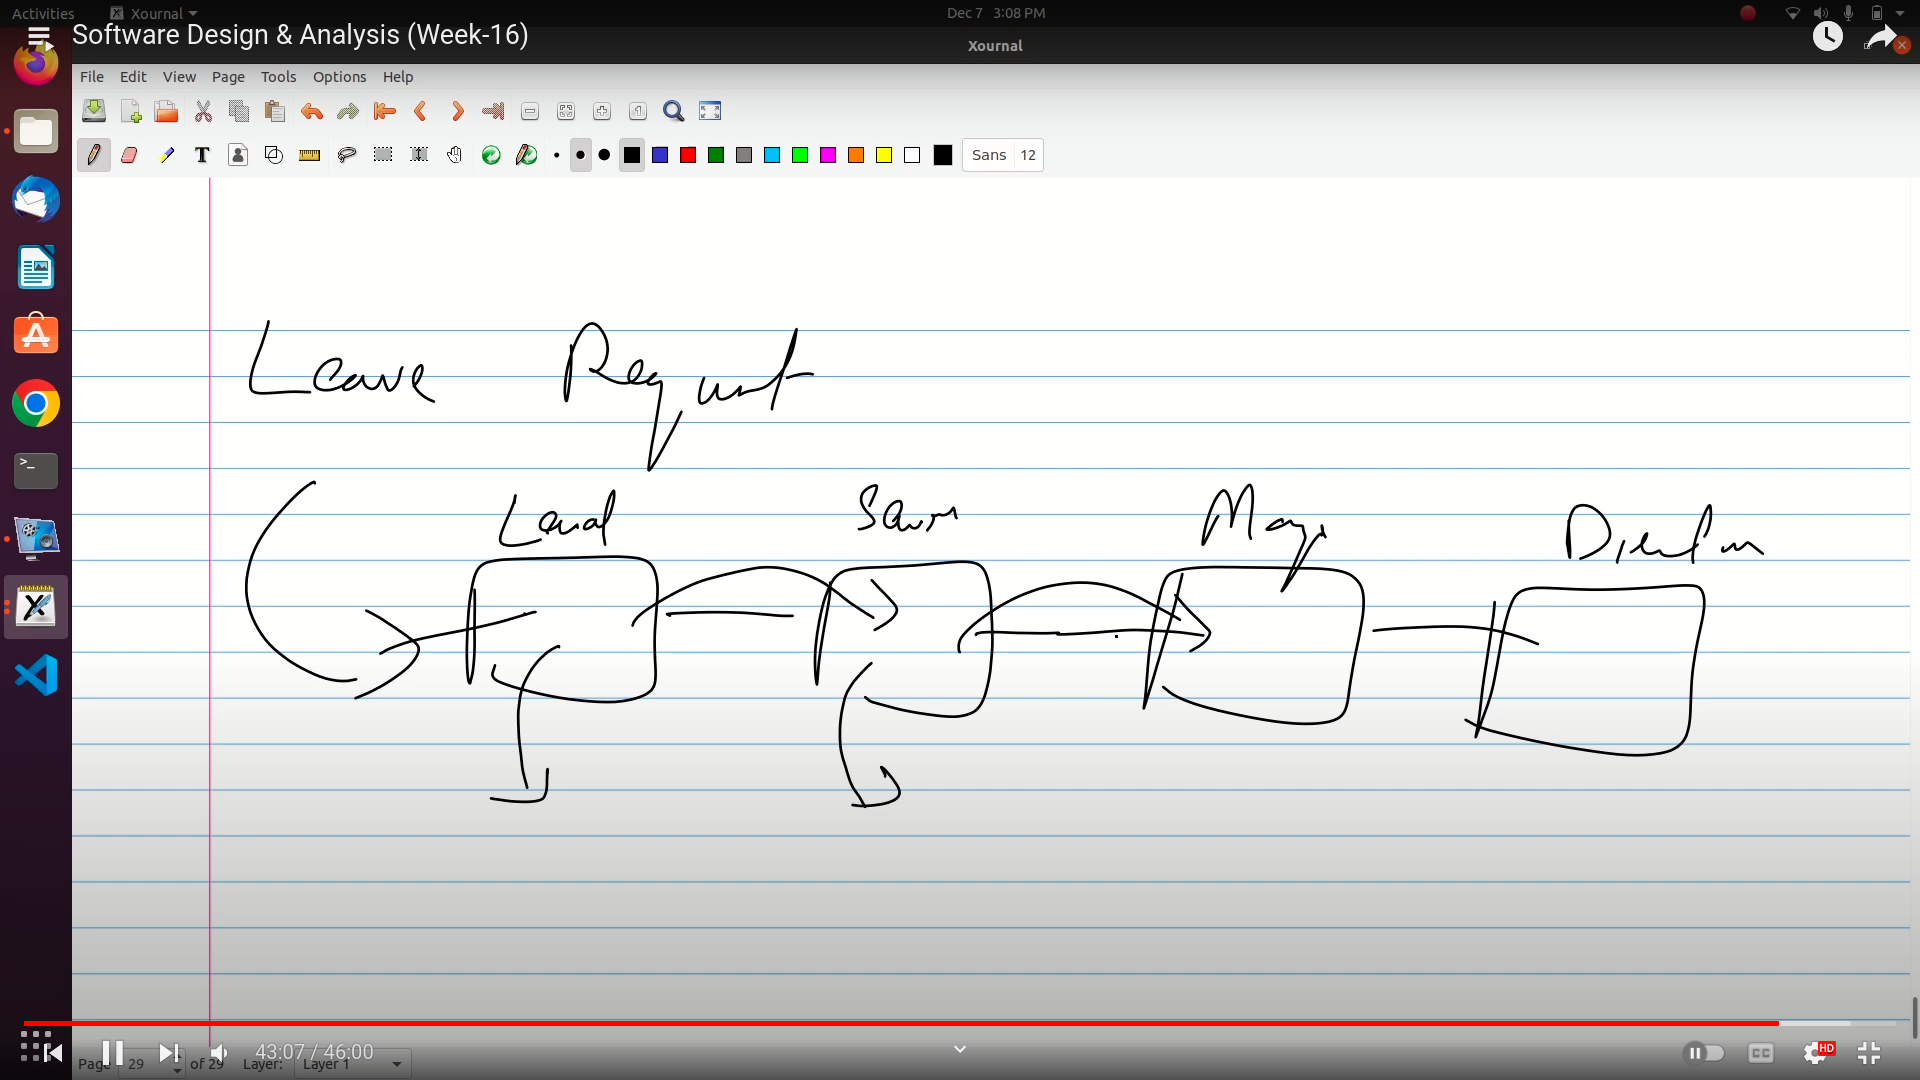 Activities Xournal Dec 7 3:08 PM
Software Design & Analysis (Week-16)
Xournal
File Edit View Page Tools Options Help
T Sans 12
Leave Request
Lead
Director
43:07 / 46:00 CC HD
Page 29 of 29 Layer: Layer 1